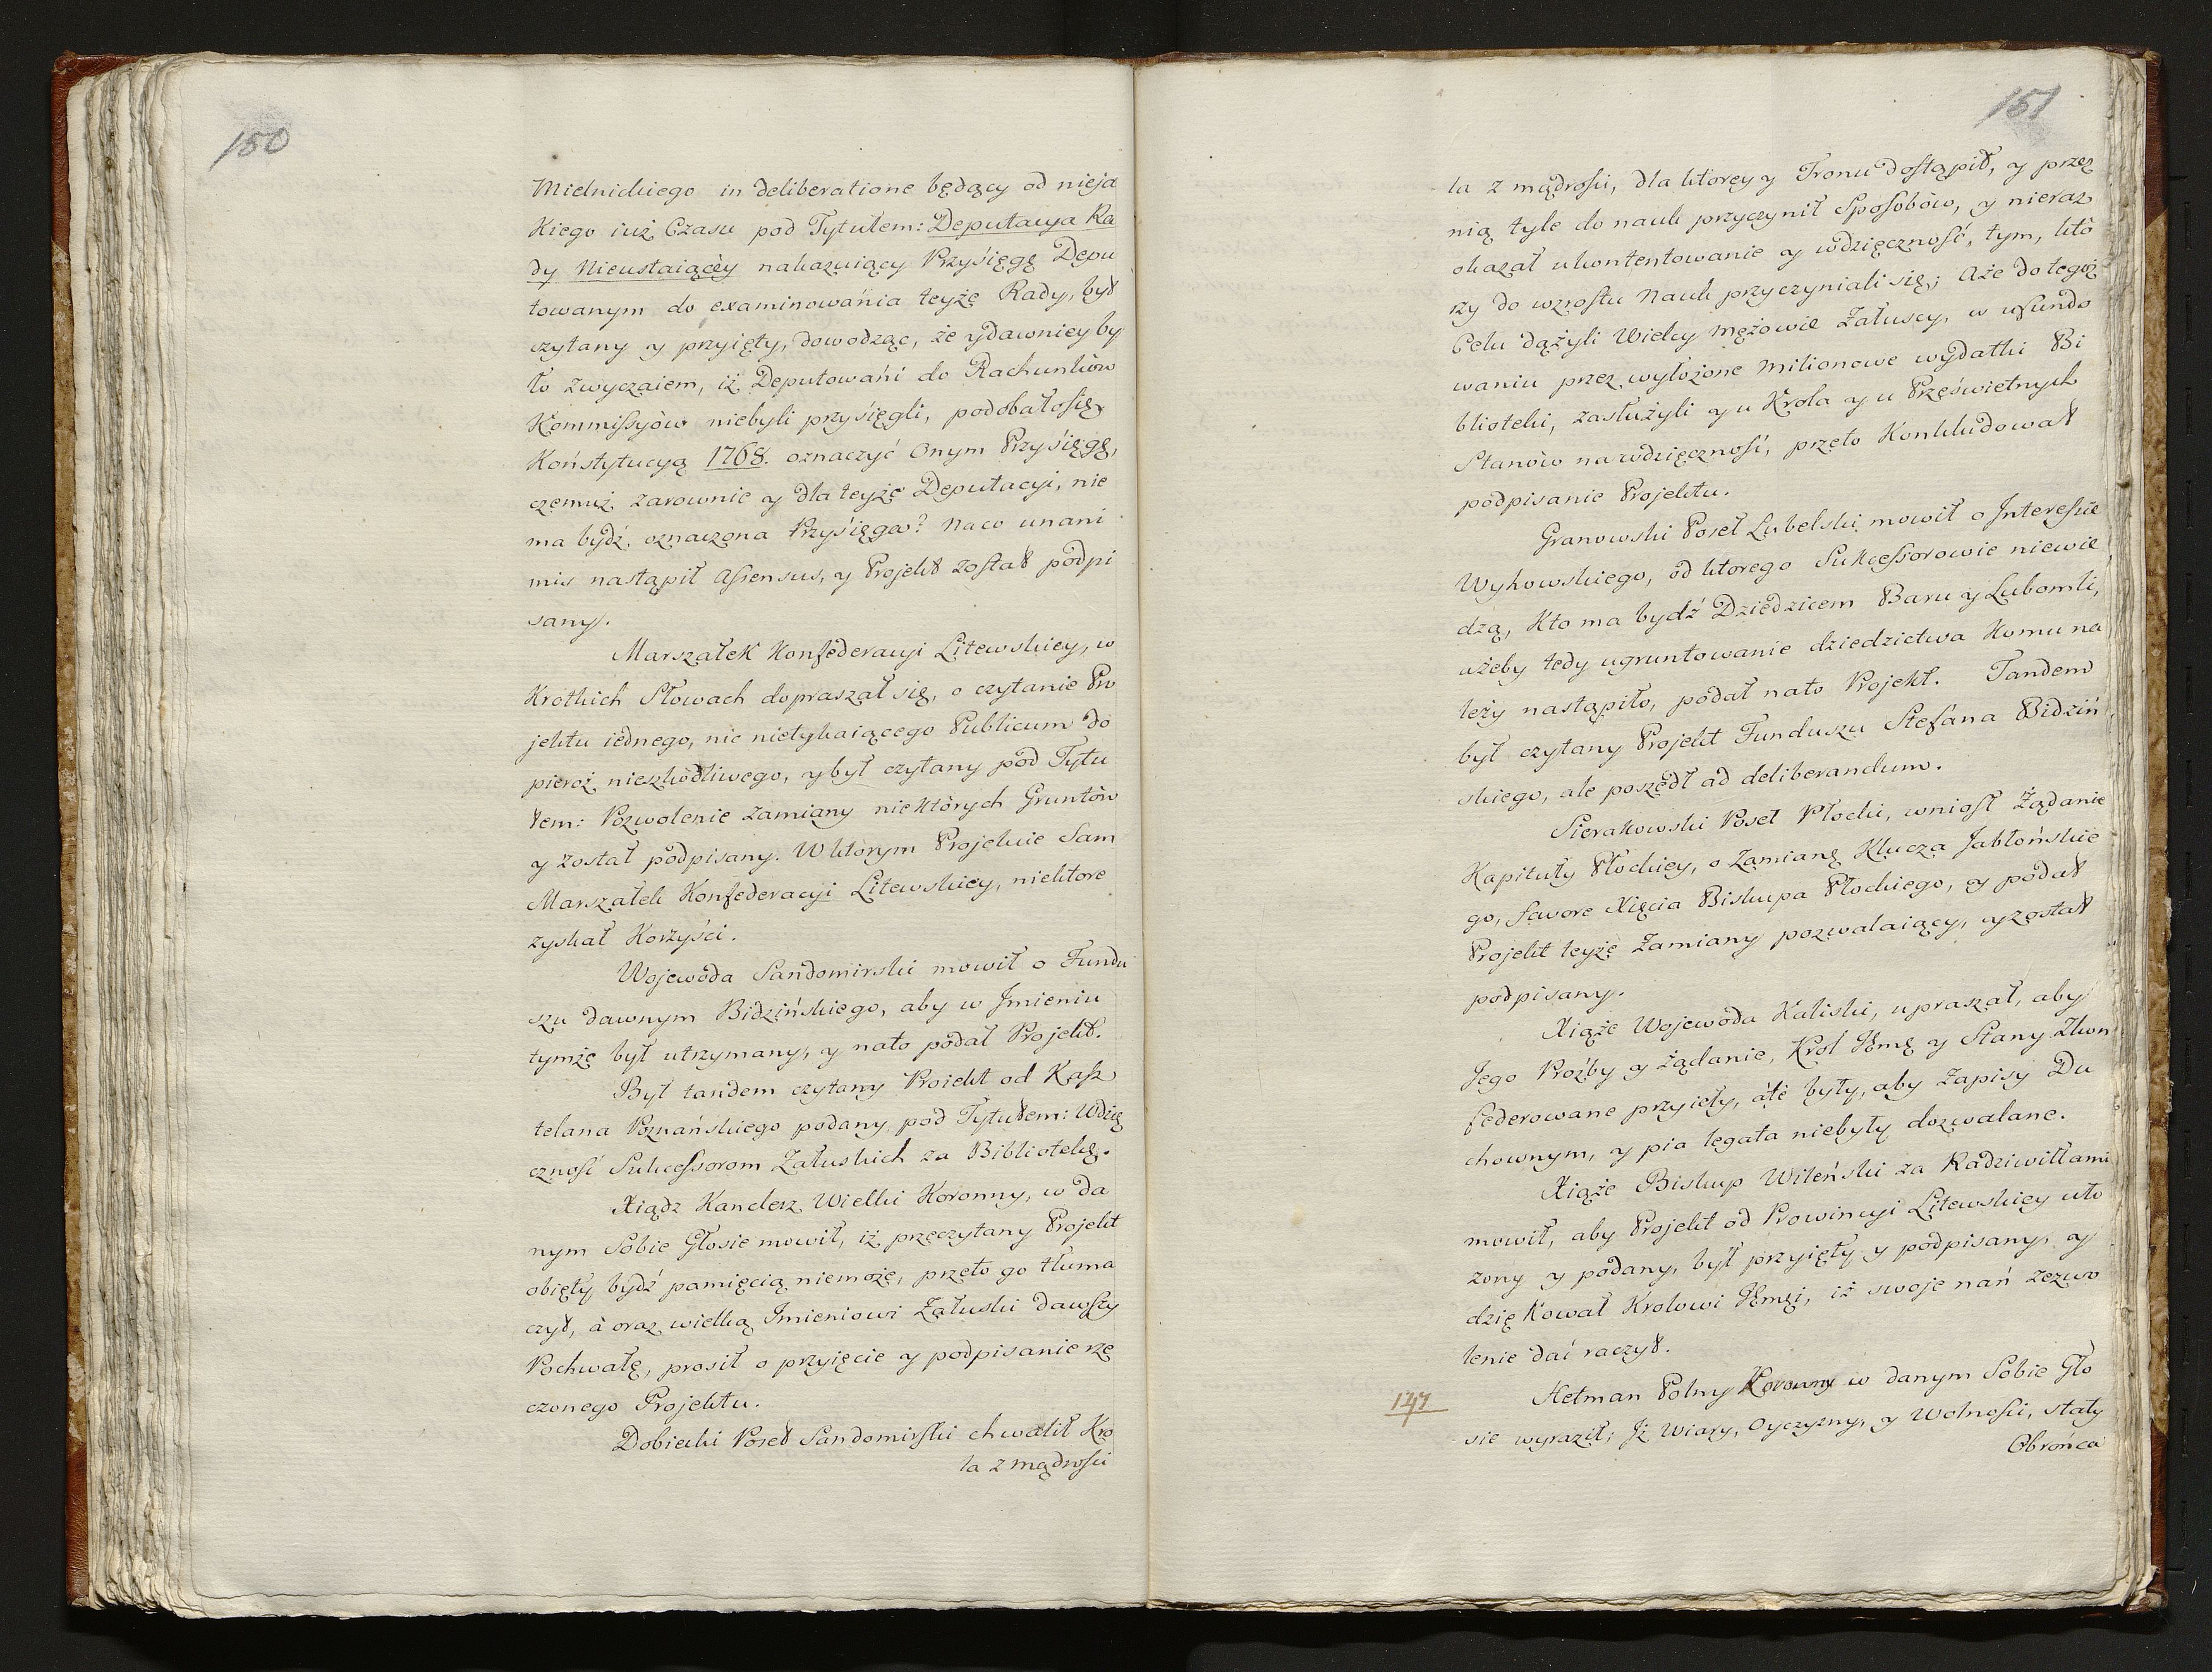 150
Mielnickiego in deliberatione będący od nieja
Kiego iuż Czasu pod Tytułem: Deputacya Ra
dy Nieustaiącèy nakazuiący Przysięgę Depu
towanym do examinowania teyżę Rady, był
czytany y przyięty, dowodząc, że y dawniey by
ło zwyczaiem, iż Deputowani do Rachunków
Kommissyòw niebyli przysięgli, podobało się
Konstytucyą 1768. oznaczyć Onym Przysięgę,
czemuż zarownie y dla teyżę Deputacyi, nie
ma bydź oznaczona Przysięga? Naco unani
mis nastąpił assensus, y Projekt został podpi
sany.
Marszałek Konfederacyi Litewskiey, w
Krotkich Słowach dopraszał się, o czytanie Pro
jektu iednego, nic nietykaiącego Publicum do
pieroż nieszkodliwego, y był czytany pod Tytu
łem: Pozwolenie zamiany niektòrych Gruntòw
y został podpisany. W ktorym Projekcie Sam
Marszałek Konfederacyi Litewskiey, niektore
zyskał Korzyści.
Wojewoda Sandomirski mowił o Fundu
szu dawnym Bidzińskiego, aby w Jmieniu
tymżę był utrzymany, y nato podał Projekt.
Był tandem czytany Proiekt od Kasz
telana Poznańskiego podany pod Tytułem: Wdzię
czność Sukcessorom Załuskich za Bibliotekę.
Xiądz Kanclerz Wielki Koronny, w da
nym Sobie Głosie mowił, iż przęczytany Projekt
obięty bydź pamięcią niemożę, przęto go tłuma
czył, à oraz wielką Jmieniowi Załuski dawszy
Pochwałę, prosił o przyięcie y podpisanie rzę
czonego Projektu.
Dobiecki Poseł Sandomirski chwalił Kro
la z mądrości
151
la z mądrości, dla ktoręy y Tronu dostąpił, y przęz
nią tyle do nauk przyczynił Sposobòw, y nieraz
okazał ukontentowanie y wdzięczność, tym, któ
rzy do wzrostu Nauk przyczyniali się; Aże do tegoż
Celu dążyli Wielcy Mężowie Załuscy, w ufundo
waniu przez wyłożone milionowe wydatki Bi
blioteki, zasłużyli y u Krola y u Prześwietnych
Stanòw na wdzięczność, przęto Konkludował
podpisanie Projektu.
Granowski Poseł Lubelski mowił o Jnteressie
Wyhowskiego, od ktorego Sukcessorowie niewie
dzą, Kto ma bydź Dziedzicem Baru y Lubomli,
ażeby tedy ugruntowanie dziedzictwa Komu na
leży nastąpiło, podał nato Projekt. Tandem
był czytany Projekt Funduszu Stefana Bidziń
skiego, ale poszędł ad deliberandum.
Sierakowski Poseł Płocki, wniosł Żądanie
Kapituły Płockiey, o Zamianę Klucza Jabłońskie
go, favore Xięcia Biskupa Płockiego, y podał
Projekt teyżę Zamiany pozwalaiący, y został
podpisany.
Xiąże Wojewoda Kaliski, upraszał, aby
Jego Proźby y żądanie, Krol Jmę y Stany Zkon
federowane przyięły, ałé były, aby Zapisy Du
chownym, y pia legata niebyły dozwalane.
Xiąże Biskup Wileński za Radziwiłłami
mowił, aby Projekt od Prowincyi Litewskięy uło
żony y podany, był przyięty y podpisany, y
dziękował Krolowi Jmęi, iż swoje nań zezwo
lenie dać raczył.
147
Hetman Polny Koronny w danym Sobie Gło
sie wyraził: Jż Wiary, Oyczyzny, y Wolności, stały
Obrońca